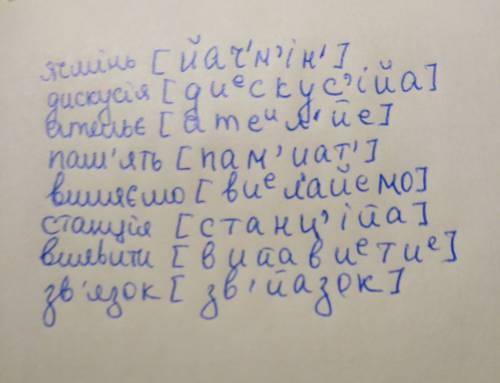 ячмінь [йач'м'ін']
дискусія [диᵉскус'ійа]
ательє [атеᶸл'йе]
пам'ять [пам'йат']
вшляємо [виᵉл'айемо]
станція [станц'ійа]
виявити [вийавиᵉтиᵉ]
зв'язок [зв'йазок]